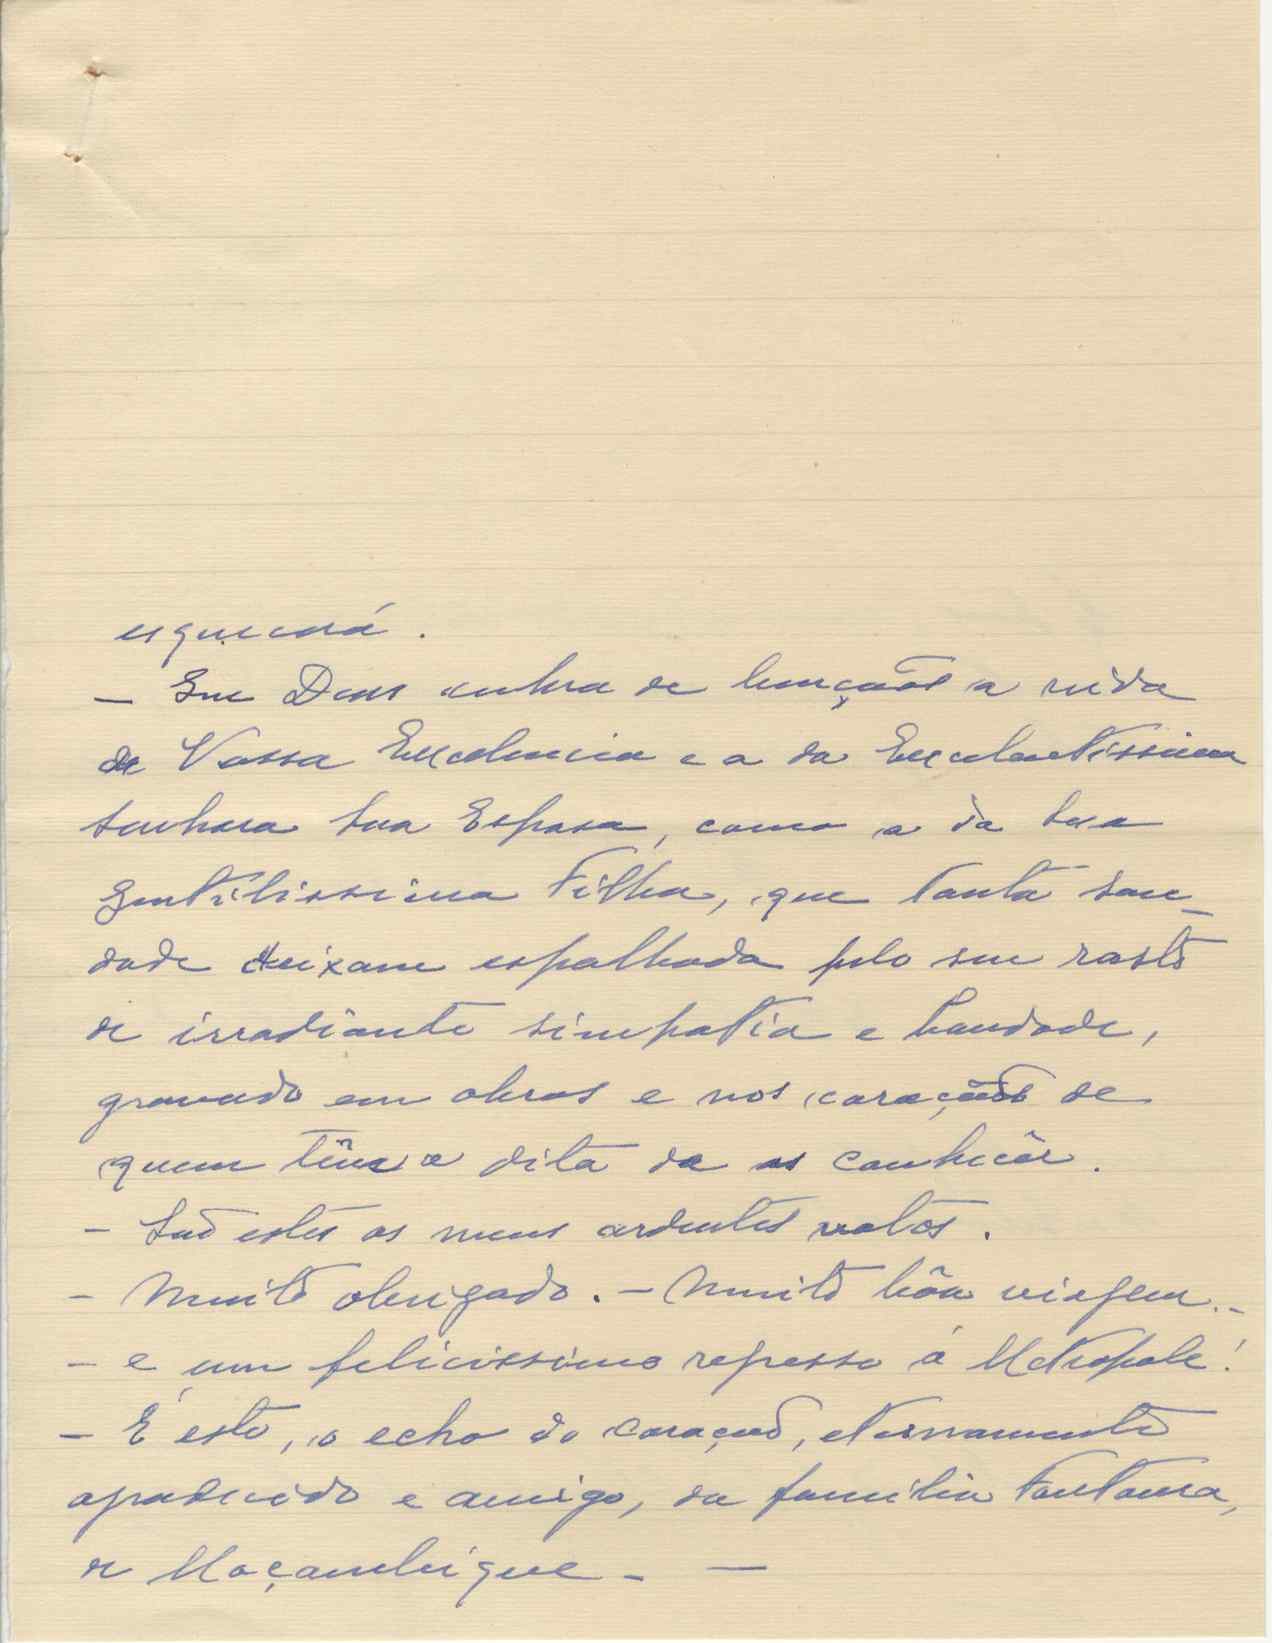 esquecerá.
– Que Deus cubra de bençãos a vida
de Vossa Excelencia e a da Excelentissima
Senhora Sua Esposa, como a da Sua
Gentilissima Filha, que tanta sau-
dade deixam espalhada pelo seu rasto
de irradiante simpatia e bondade,
gravado em obras e nos corações de
quem têm a dita de os conhecêr.
– São estes os meus ardentes votos.
– Muito obrigado. – Muito bôa viagem. –
– e um felicissimo regresso á Metropole!
– É este, o echo do coração, eternamente
agradecido e amigo, da familia Fontoura,
de Moçambique. –